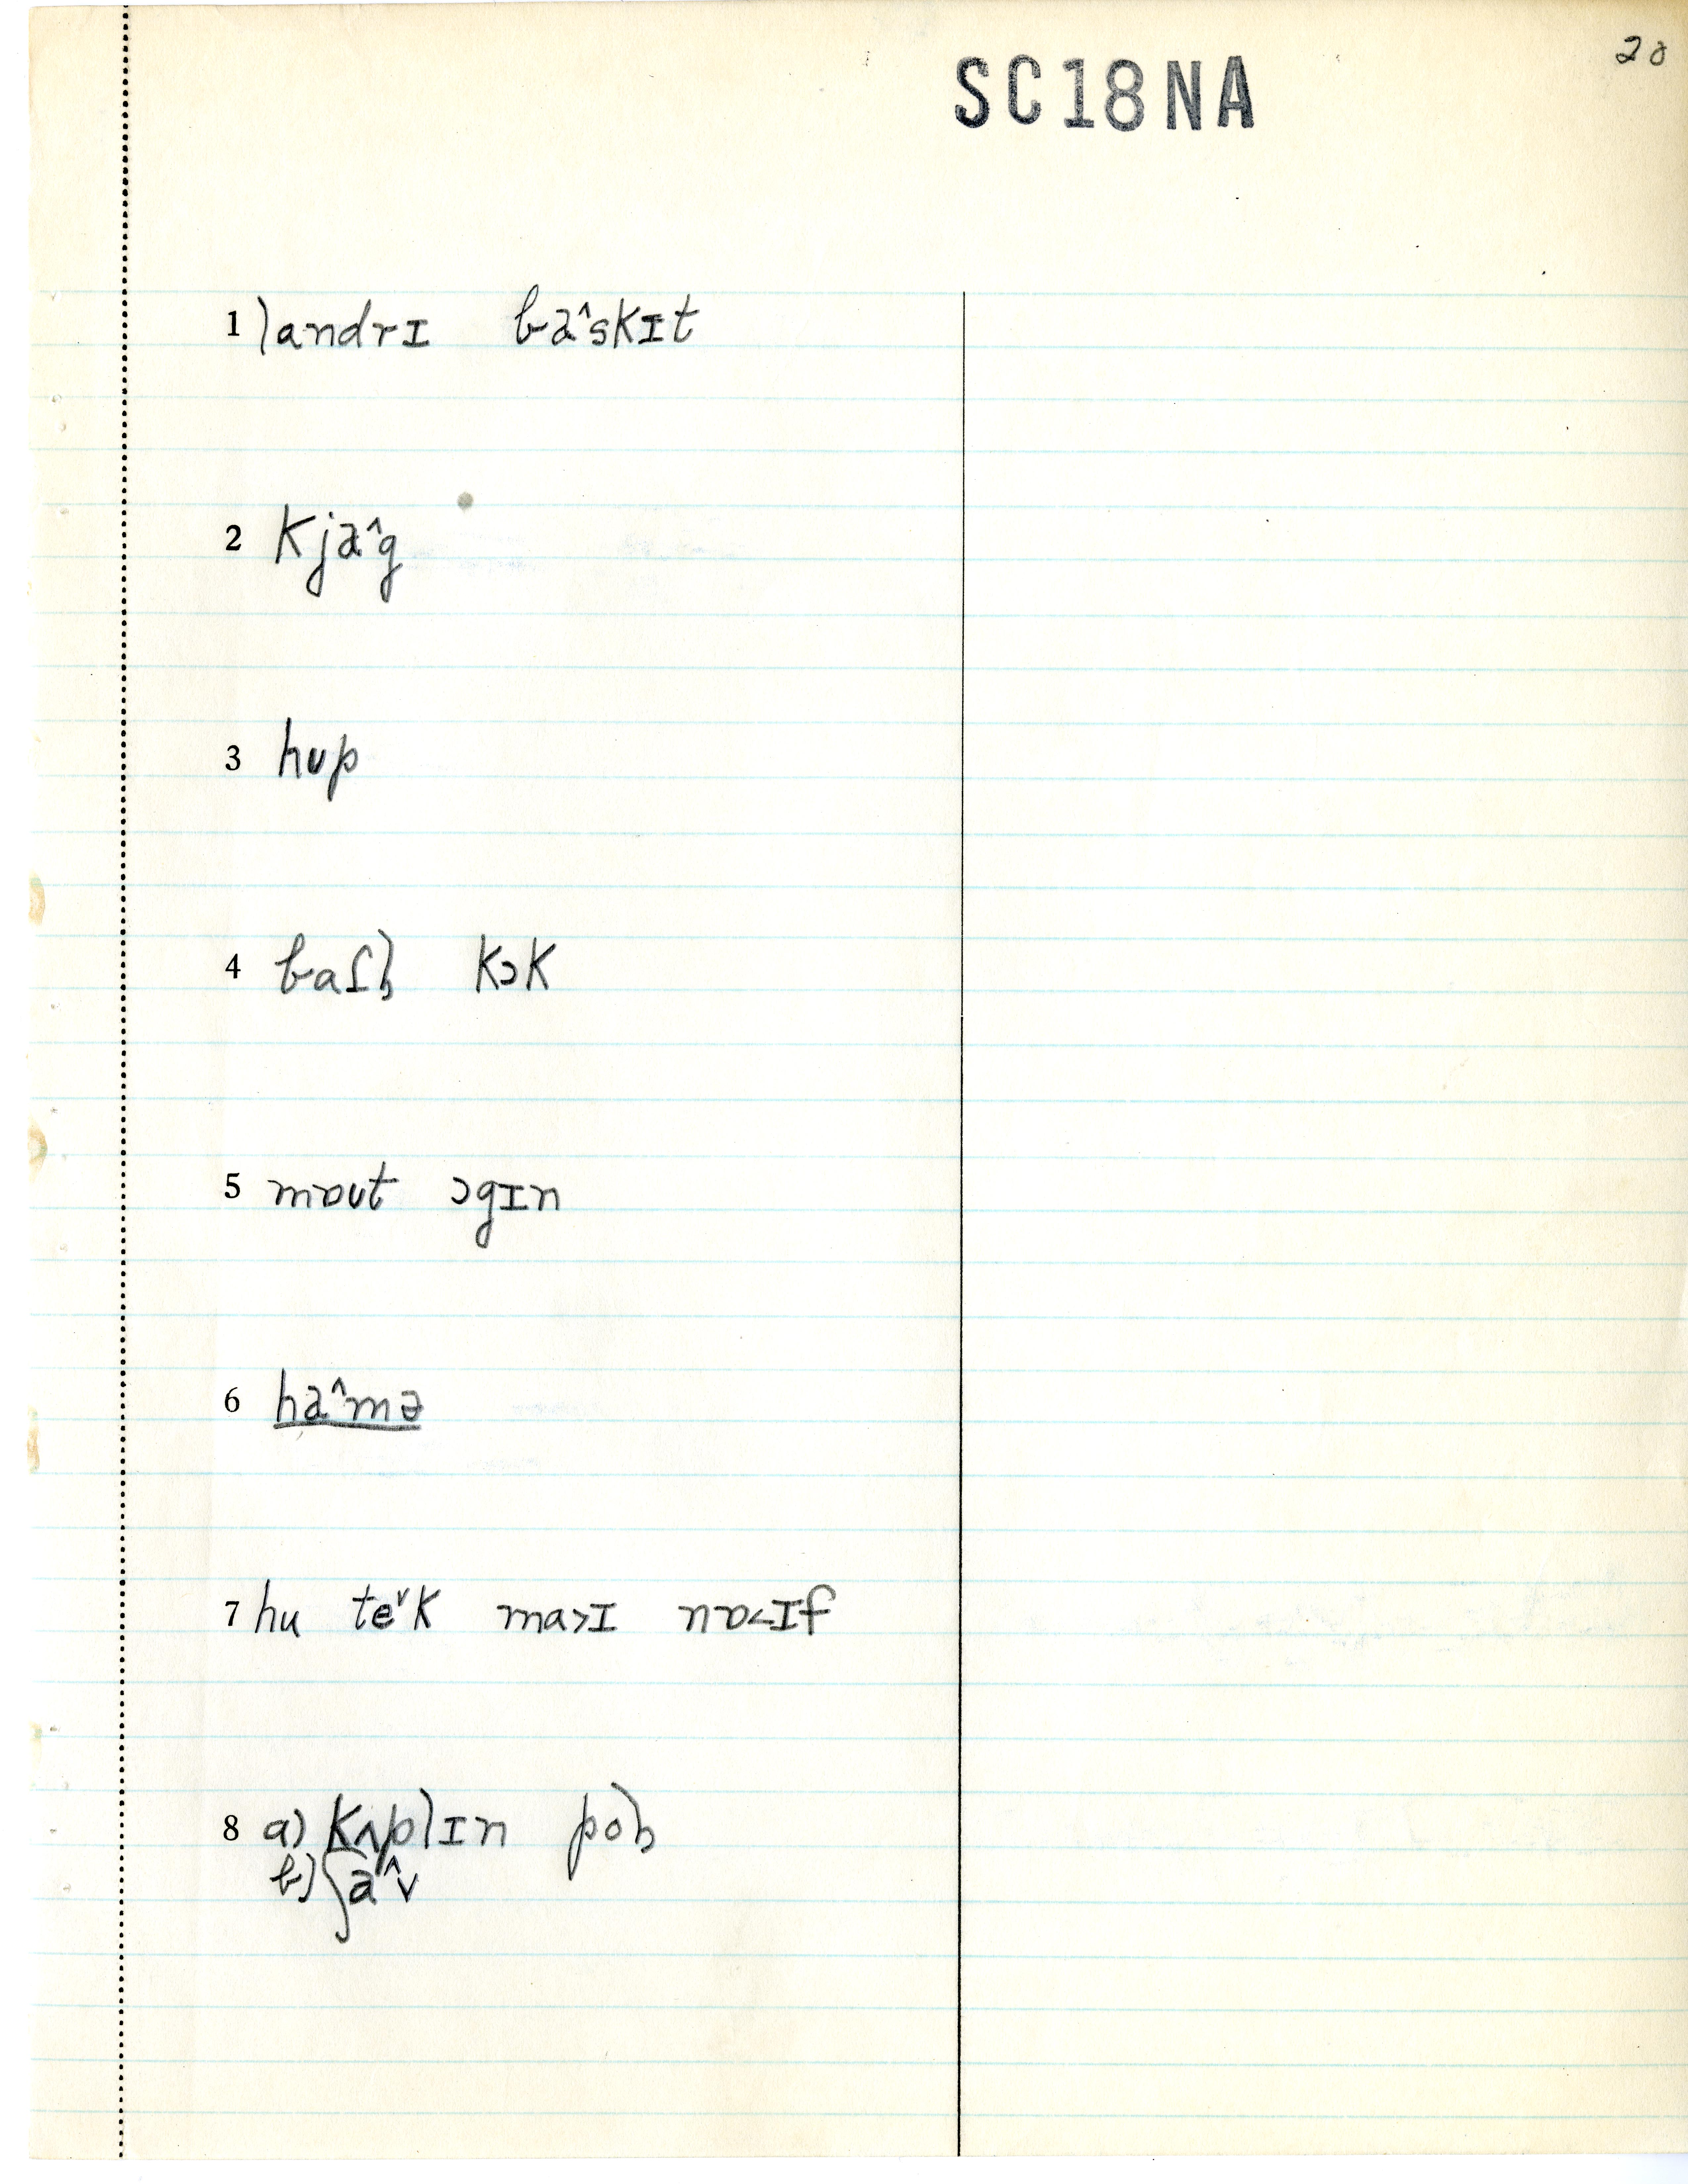 20
SC18NA
1 landrɪ ba^skɪt
2 kja^g
3 hʊp
4 baɾl̩ kɔk
5 mɒʊt ɔgɪn
6 ha^mə
7 hu teˇk ma>ɪ nɒ<ɪf
8 a) kʌplɪn pol̩
b) ʃa^v